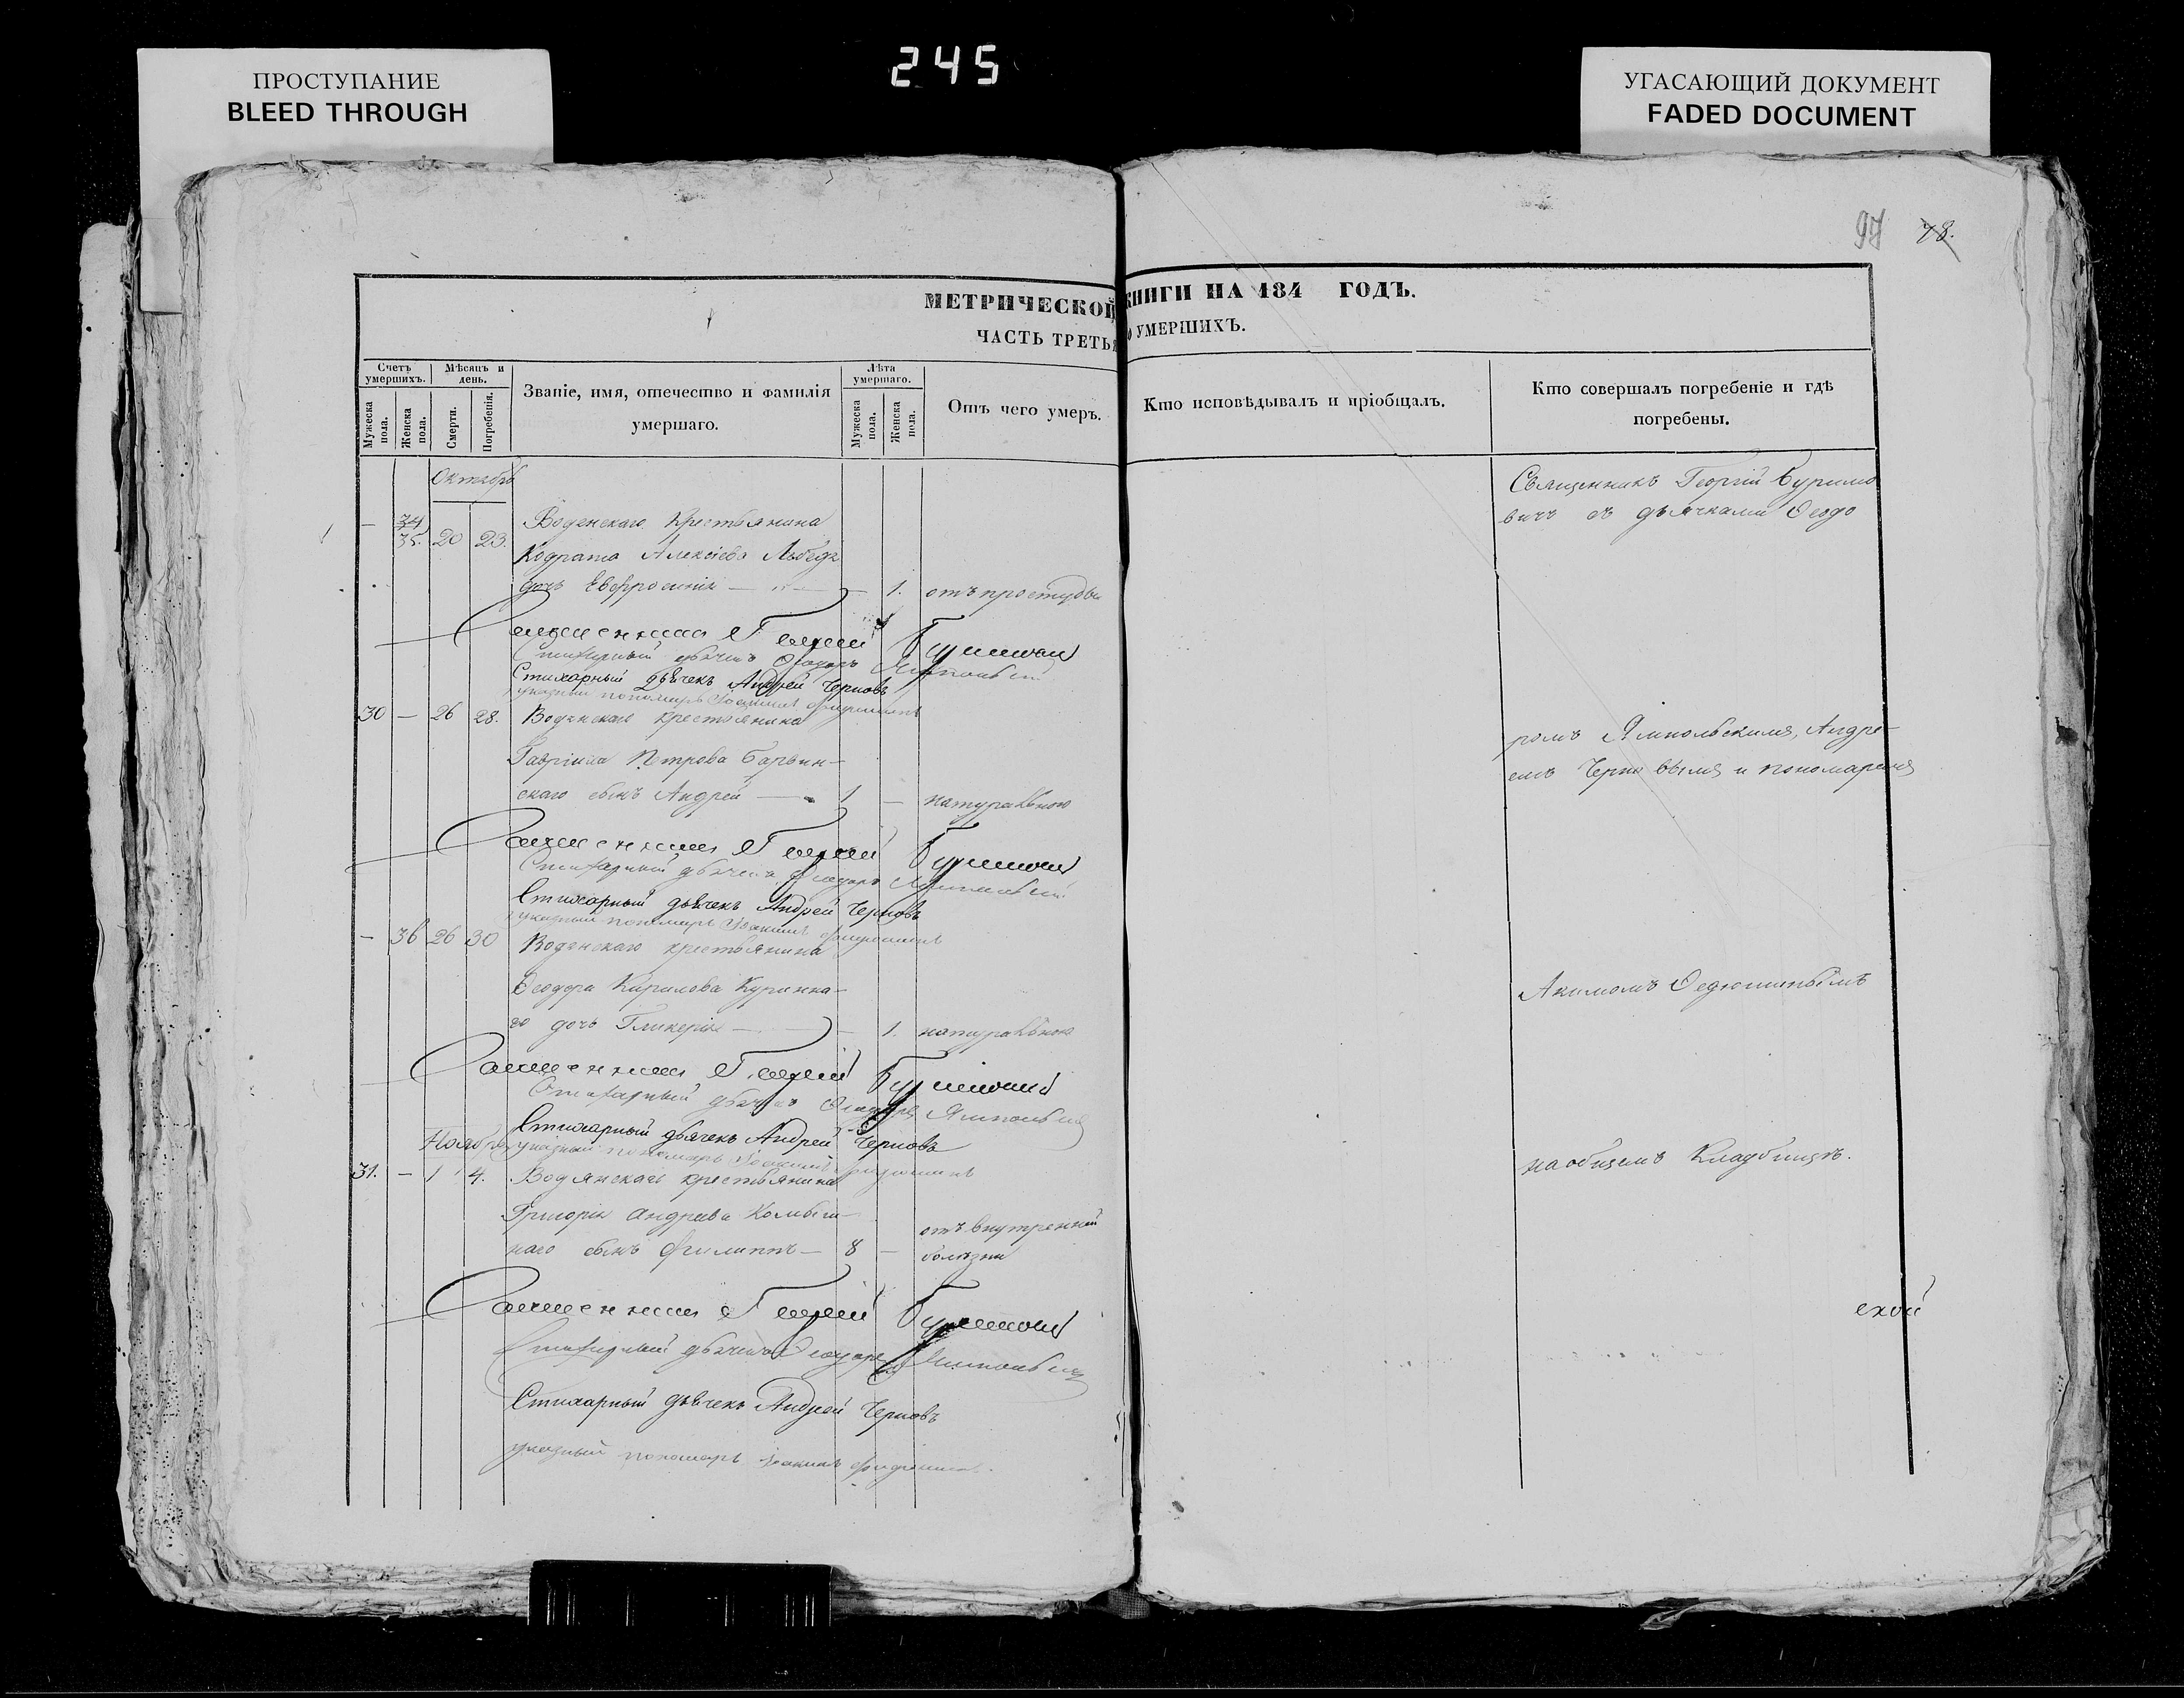 ПРОСТУПАНИЕ
BLEED THROUGH
245
УГАСАЮЩИЙ ДОКУМЕНТ
FADED DOCUMENT
97 78.
МЕТРИЧЕСКОЙ КНИГИ НА 184 ГОДЪ.
ЧАСТЬ ТРЕТЬЯ УМЕРШИХЪ.
Счетъ умершихъ.
Мужеска пола.
Женска пола.
Мѣсяцъ и день.
Смерти.
Погребенія.
Званіе, имя, отечество и фамилія умершаго.
Лѣта умершаго.
Мужеска пола.
Женска пола.
Отъ чего умеръ.
Кто исповѣдывалъ и пріобщалъ.
Кто совершалъ погребеніе и гдѣ погребены.
Октябрь
— 34 35. 20 23. Водянскаго Крестьянина
Кодрата Алексіева Лебедя
дочь Евфросинія — 1. отъ простуды
Священникъ Георгій Буримовичъ
Стихарный дьячекъ Ѳеодоръ Ямпольскій
Стихарный дьячекъ Андрей Черновъ
указный пономарь Іоакимъ
30 — 26 28. Водянскаго крестьянина
Гавріила Петрова Барвин-
скаго сынъ Андрей — 1 — натуральною
Священникъ Георгій Буримовичъ
Стихарный дьячекъ Ѳеодоръ Ямпольскій
Стихарный дьячекъ Андрей Черновъ
указный пономарь Іоакимъ
— 36 26 30 Водянскаго крестьянина
Ѳеодора Кирилова Куринна-
го дочь Гликерія — 1. натуральною
Священникъ Георгій Буримовичъ
Стихарный дьячекъ Ѳеодоръ Ямпольскій
Стихарный дьячекъ Андрей Черновъ
Ноябрь указный пономарь Іоакимъ
31. — 1 4. Водянскаго крестьянина
Григорія Андреева
наго сынъ Филиппъ — 8 — отъ внутренней
болѣзни
Священникъ Георгій Буримовичъ
Стихарный дьячекъ Ѳеодоръ Ямпольскій
Стихарный дьячекъ Андрей Черновъ
указный пономарь Іоакимъ
Священникъ Георгій Буримо
вичъ съ дьячками Ѳеодо
ромъ Ямпольскимъ, Андре-
емъ Черновымъ и пономаремъ
Акимомъ Ѳедюшинымъ
на общемъ Кладбищѣ.
ской